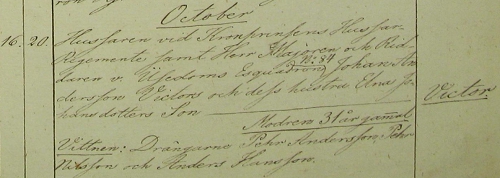 October
16. 20. Husaren vid Kronprinsens Husar-
Regemente samt Herr Majoren och Rid-
daren v. Esquadron No 84 Johan An-
dersson Victor och dess hustru Elna Jo-
hansdotters Son Victor.
Modren 31 år gamal
Vittnen: Drängarne Pehr Andersson, Pehr
Nilsson och Anders Hansson.